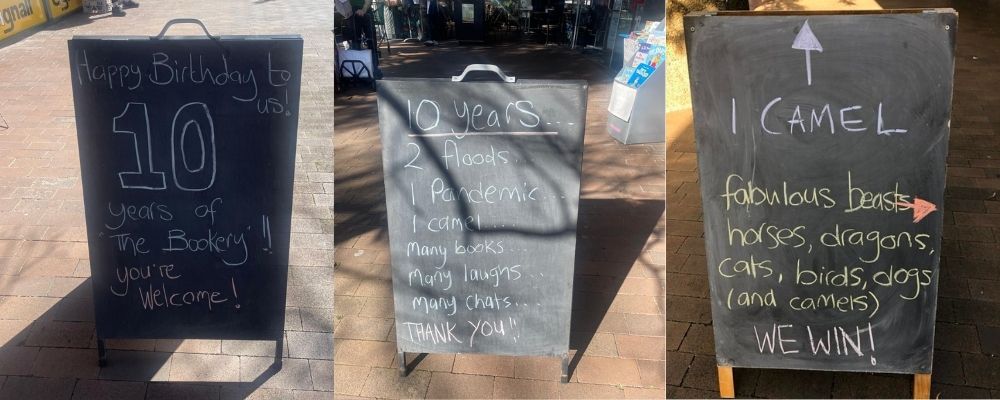 gnall
Happy Birthday to
us!
10
years of
'The Bookery' !!
you're
Welcome!
10 years...
2 floods...
1 Pandemic...
1 camel....
many books...
many laughs...
many chats...
THANK YOU!!
1 CAMEL
fabulous beasts
horses, dragons,
cats, birds, dogs
(and camels)
WE WIN!